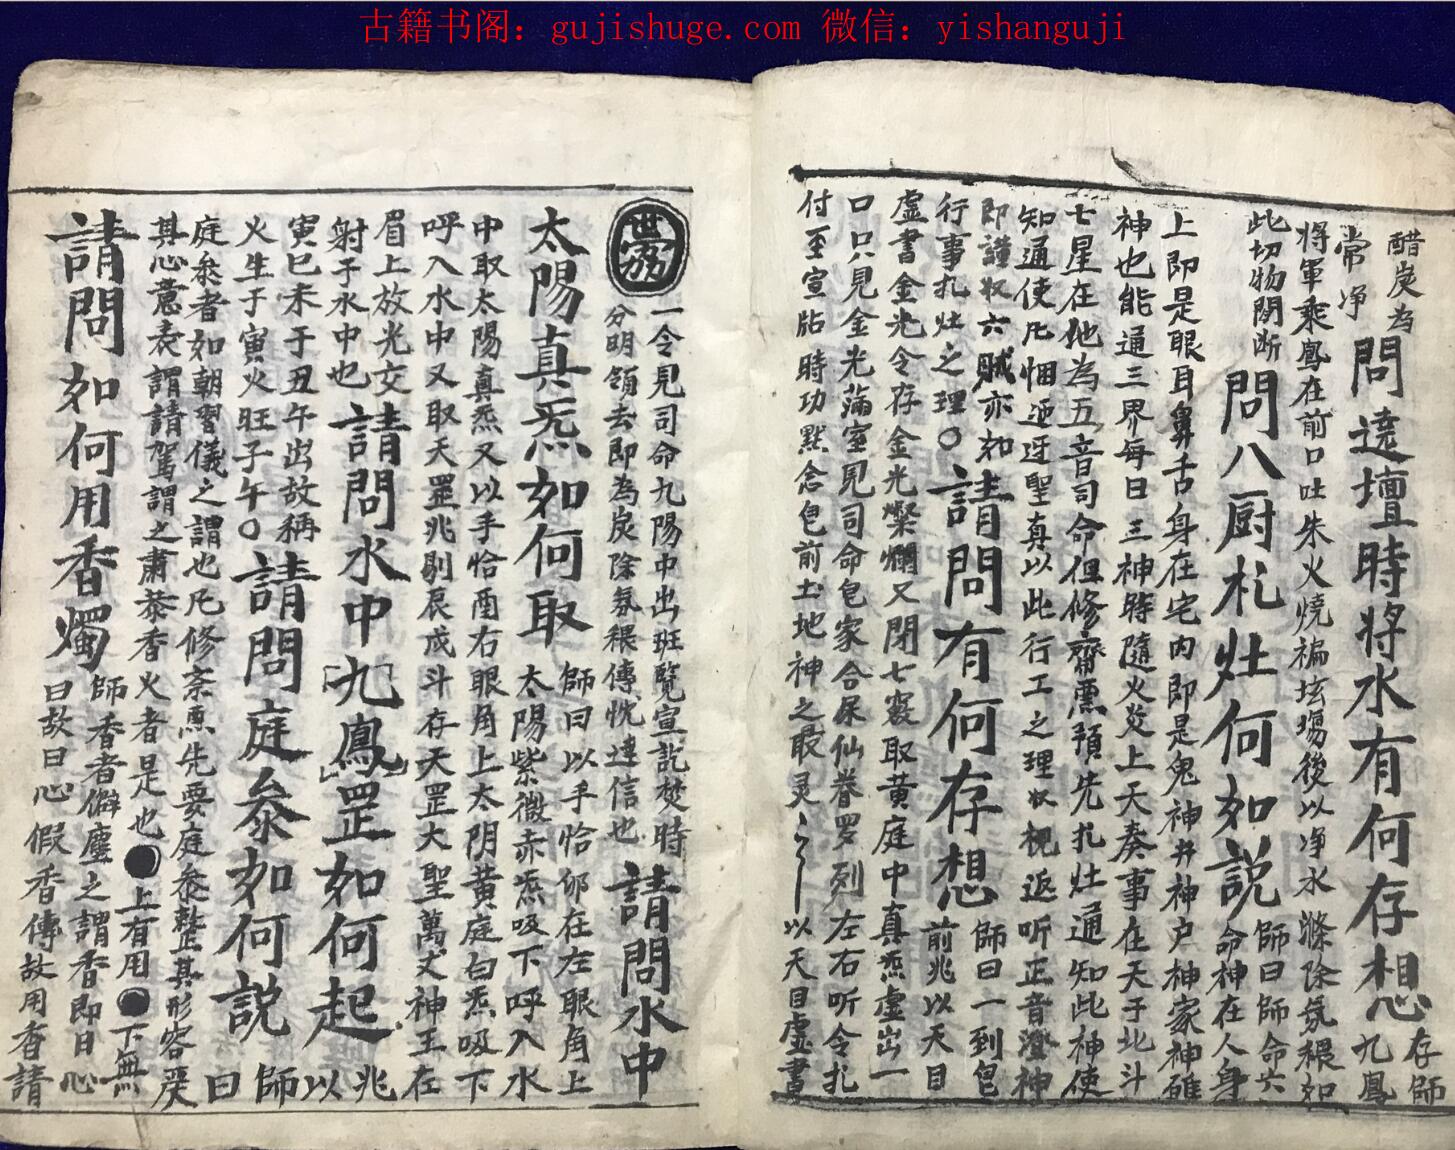 古籍书阁：gujishuge.com 微信：yishanguji
醋炭為
常净
問遶壇時將水有何存想
存師
九鳳
將軍乘鳳在前口吐朱火燒褊坛塲後以净水滌除氛穢如
此切物間断
問八厨札灶何如説
師曰師命六
命神在人身
上即是眼耳鼻舌身在宅内即是鬼神井神户神家神碓
神也能通三界每日三神時隨火炎上天奏事在天于北斗
七星在他為五音司命但修齋熏預先扎灶通知此神使
知通使凡悃迊迓聖真以此行工之理収視返听正音澄神
即謹収六賊亦如
請問有何存想
師曰一到皂
前兆以天目
行事扎灶之理○
虛書金光令存金光燦爛又閉七竅取黄庭中真炁虛出一
口只見金光蒲室見司命皂家合属仙眷罗列左右听令扎
付至宣牒時功默念皂前土地神之最灵以天目虛書
一令見司命九陽中出班覽宣訖焚時
分明領去即為炭除氛穢傳忱達信也
請問水中
太陽真炁如何取
師曰以手恰卯在左眼角上
太陽紫微赤炁吸下呼入水
中取太陽真炁又以手恰酉右眼角上太阴黄庭白炁吸下
呼入水中又取天罡兆剔辰戌斗存天罡大聖萬丈神王在
眉上放光交
射于水中也
請問水中九鳳罡如何起
兆
以
寅巳未于丑午出故稱
火生于寅火旺子午○
請問庭叅如何説
師
曰
庭叅者如朝習儀之謂也凡修斋熏先要庭叅整其形容罢
其心意表謂請駕謂之肅㳟香火者是也●上有用●下無
請問如何用香燭
師香者僻塵之謂香即日心
曰故曰心假香傳故用香請